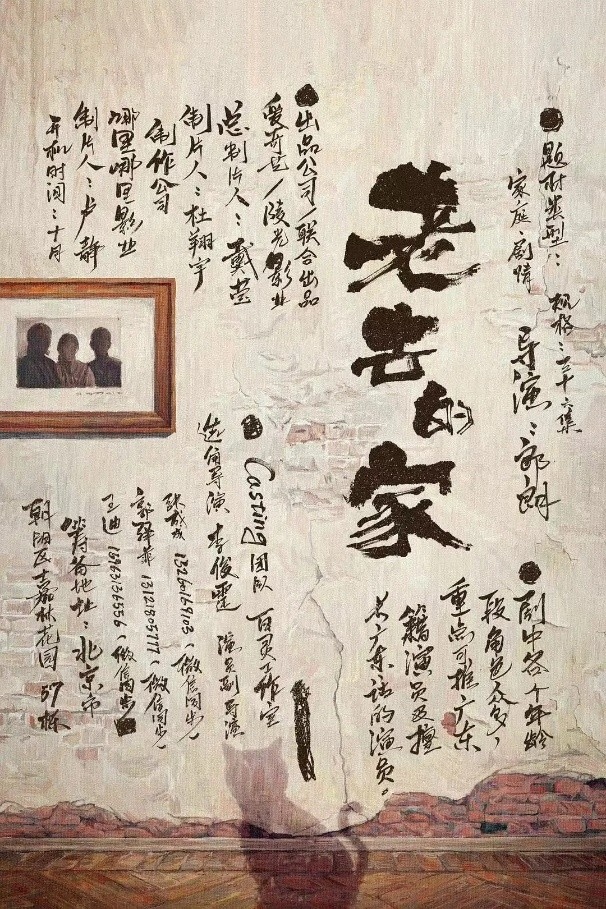 题材类型：
家庭、剧情
规格：三十六集
导演：郭朗
老去的家
剧中各个年龄
段角色众多，
重点可推广东
籍演员及擅
长广东话的演员。
出品公司/联合出品
爱奇艺/陵光影业
总制片人：戴莹
制片人：杜翔宇
制作公司
哪里哪里影业
制片人：卢静
开机时间：十月
Casting团队 百灵工作室
选角导演 李俊霆 演员副导演
13260169103（微信同步）
郭驿菲 13121805777（微信同步）
王迪 15963136556（微信同步）
地址：北京市
朝阳区 嘉林花园 57栋